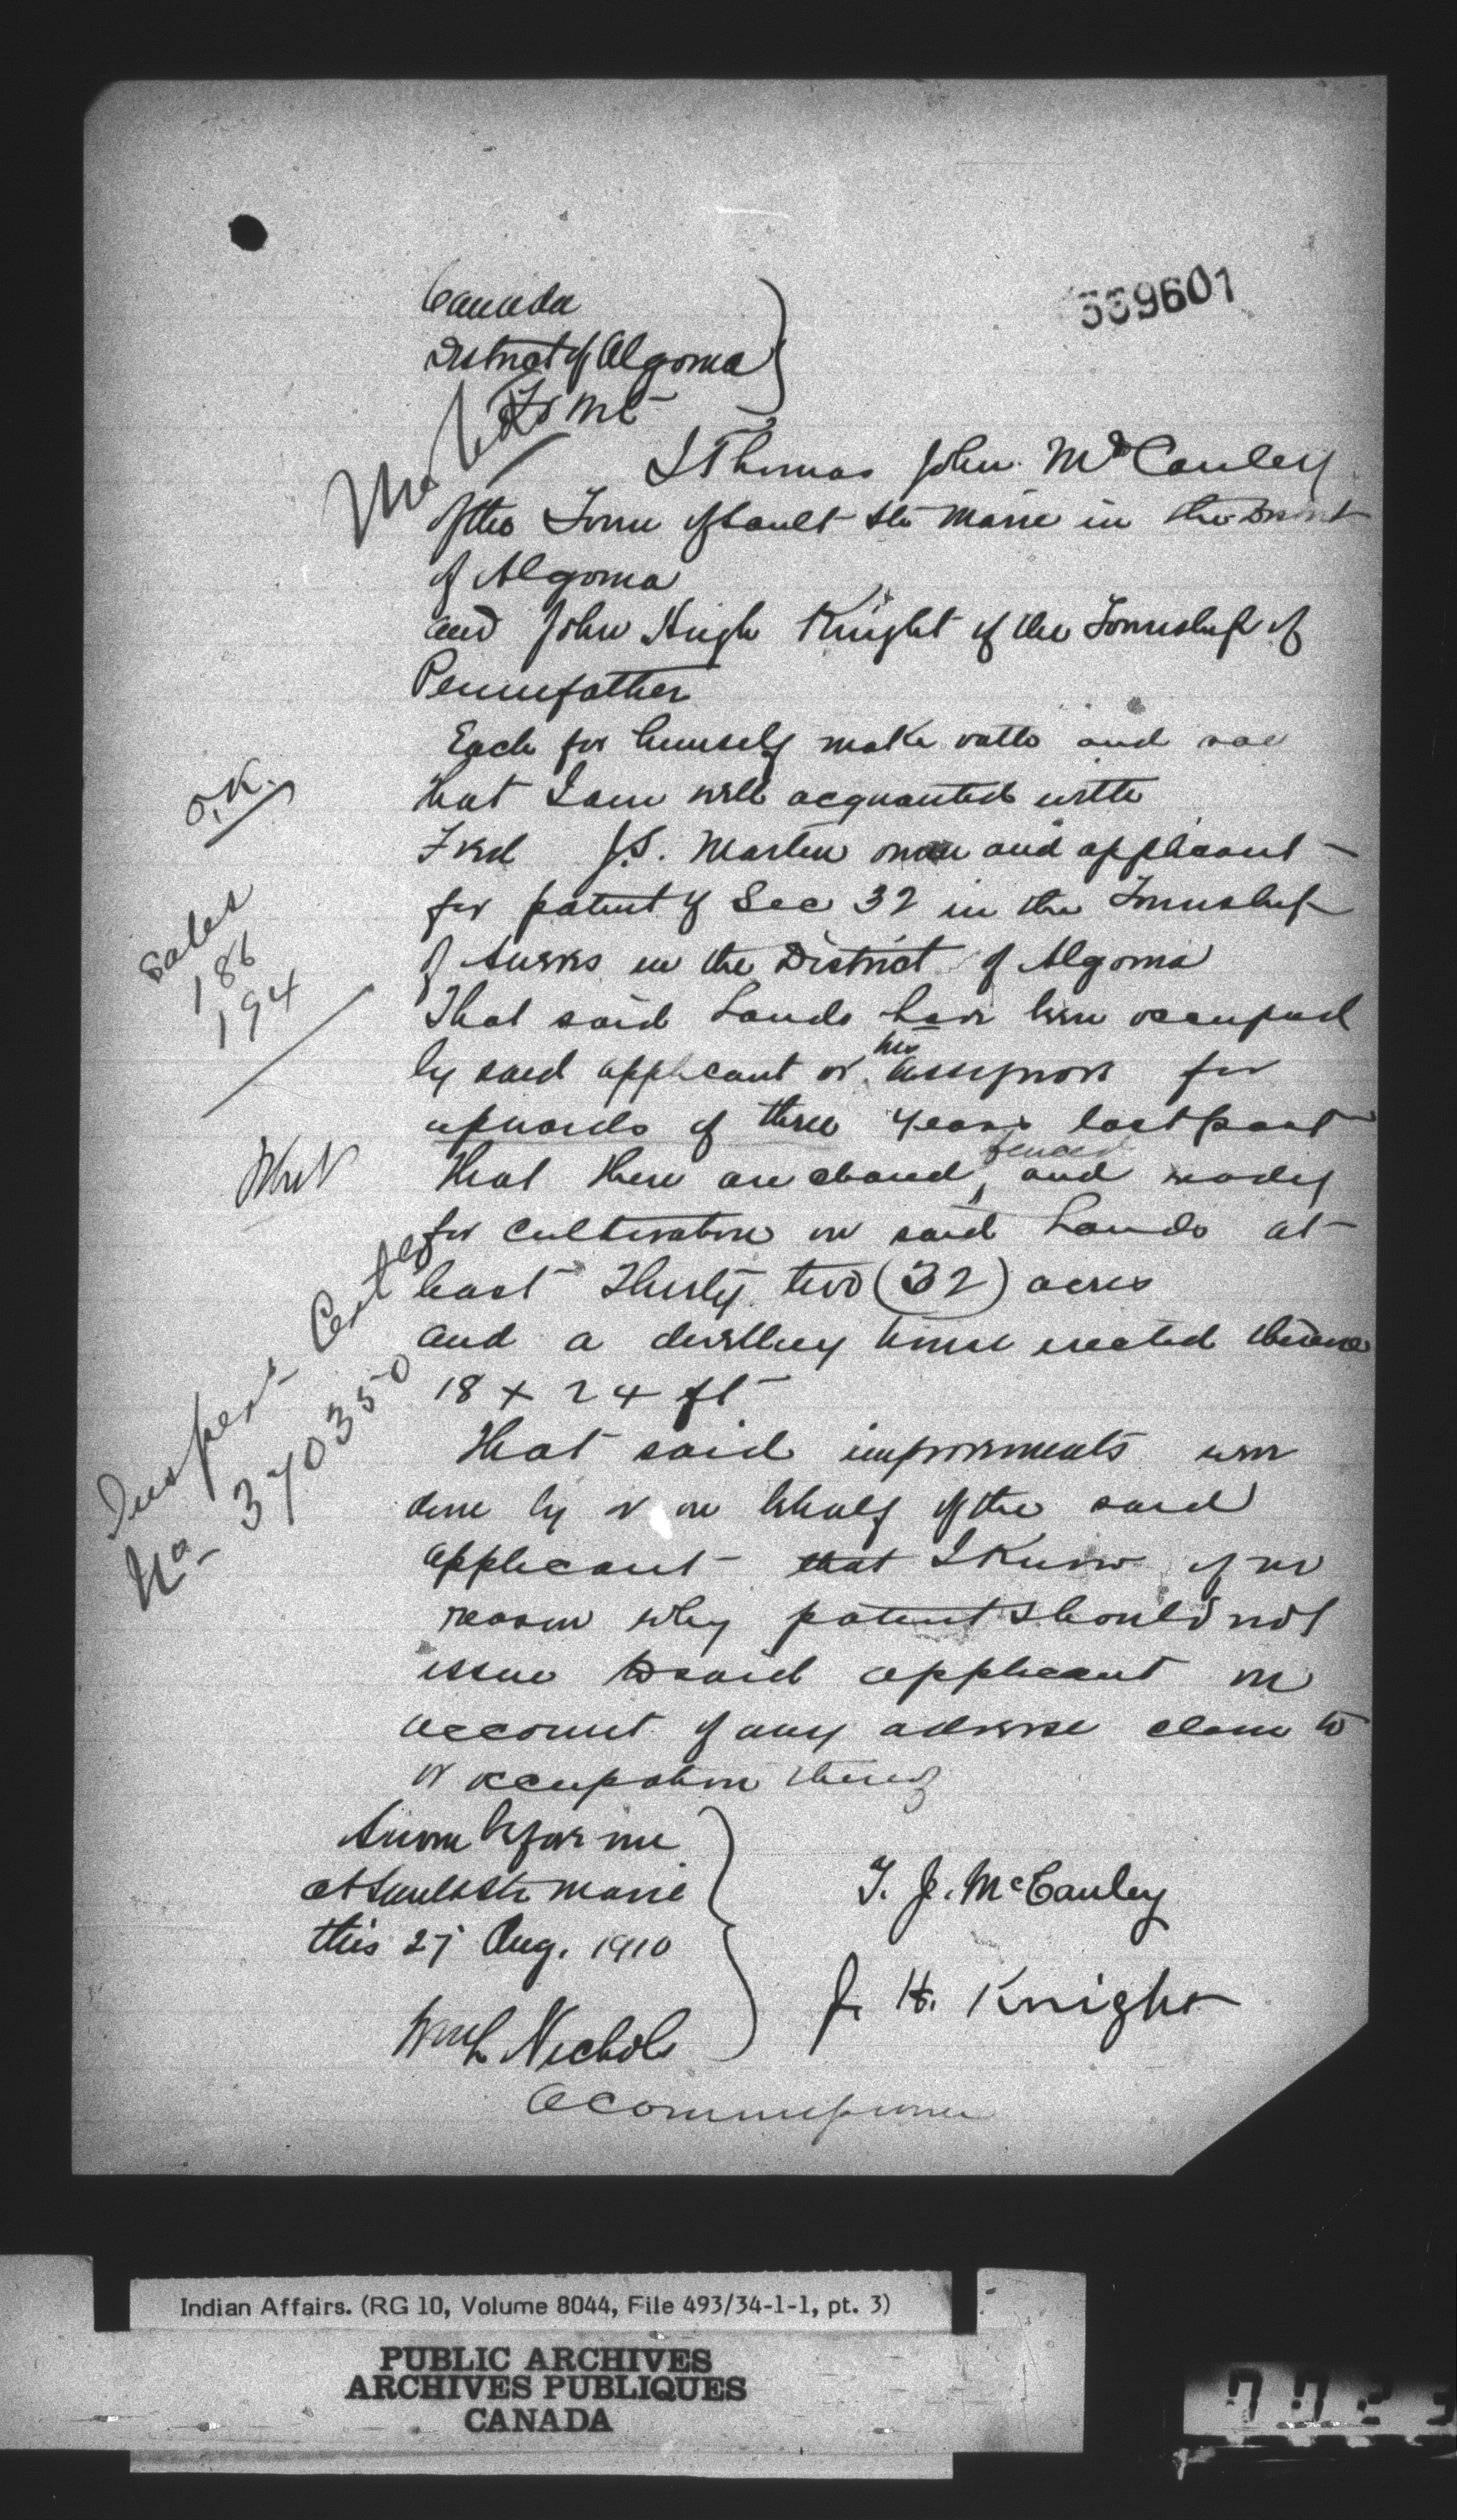 Canada
District of Algoma
To Wit
369601
I Thomas John McCauley
of the Town of Sault Ste Marie in the District
of Algoma
and John Hugh Knight of the Township of
Pennefather
Each for himself make oath and say
that I am well acquainted with
Fred J.S. Martin owner and applicant
for patent of Sec 32 in the Township
of Awres in the District of Algoma
That said Lands have been occupied
by said applicant or his assignors for
upwards of three years last past
that there are cleared, fenced and ready
for cultivation on said Lands at
least Thirty two (32) acres
and a dwelling house erected thereon
18 x 24 ft
that said improvements were
done by or on behalf of the said
applicant that I know of no
reason why patent should not
issue to said applicant on
account of any adverse claim to
or occupation thereof
Sworn before me
at Sault Ste Marie
this 27 Aug. 1910
Wm L Nichols
A Commissioner
T. J. McCauley
J. H. Knight
O.K.
Sales
186
194
Inspect Certe
No 370350
Indian Affairs. (RG 10, Volume 8044, File 493/34-1-1, pt. 3)
PUBLIC ARCHIVES
ARCHIVES PUBLIQUES
CANADA